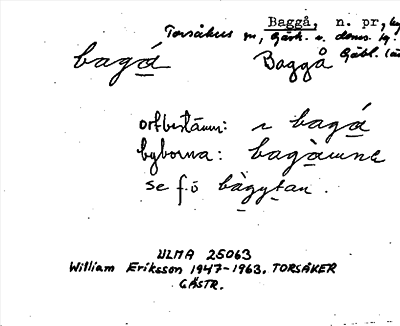 Baggå, n. pr, by
Torsåkers sn, Gästr. o. denns lg.
bagá Baggå Gävl. län
ortbestämn: i bagá
byborna: bagàmne
se f.ö bàgytan.
ULMA 25063
William Eriksson 1947-1963. TORSÅKER
GÄSTR.